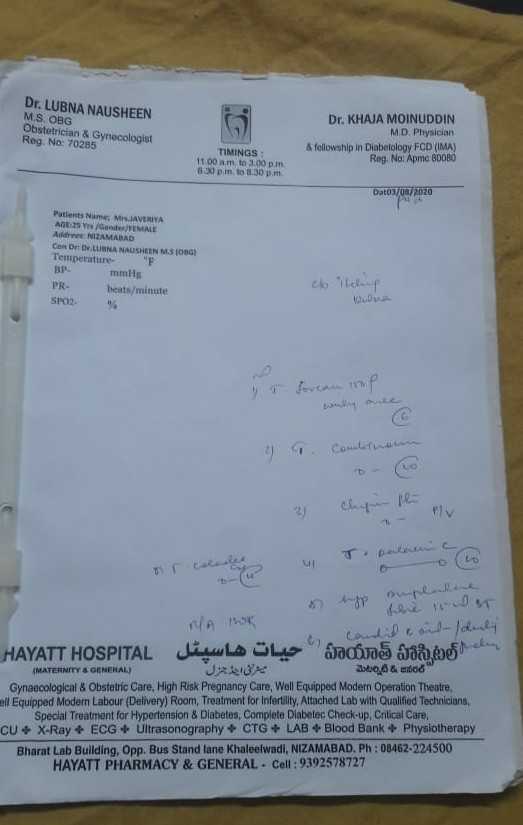 Dr. LUBNA NAUSHEEN
M.S. OBG
Obstetrician & Gynecologist
Reg. No: 70285
TIMINGS :
11.00 a.m. to 3.00 p.m.
6.30 p.m. to 8.30 p.m.
Dr. KHAJA MOINUDDIN
M.D. Physician
& fellowship in Diabetology FCD (IMA)
Reg. No: Apmc 80080
Dat03/08/2020
Patients Name; Mrs.JAVERIYA
AGE:25 Yrs /Gender/FEMALE
Address: NIZAMABAD
Con Dr: Dr.LUBNA NAUSHEEN M.S (OBG)
Temperature- °F
BP- mmHg
PR- beats/minute
SPO2- %
c/o Itching
1) T.
weekly once
6
2) T.
10
3)
P/V
4) T.
10
5)
6) candid
HAYATT HOSPITAL
(MATERNITY & GENERAL)
حیات ہاسپیٹل
میٹرنٹی اینڈ جنرل
హయాత్ హాస్పిటల్
మెటర్నిటీ & జనరల్
Gynaecological & Obstetric Care, High Risk Pregnancy Care, Well Equipped Modern Operation Theatre,
ell Equipped Modern Labour (Delivery) Room, Treatment for Infertility, Attached Lab with Qualified Technicians,
Special Treatment for Hypertension & Diabetes, Complete Diabetec Check-up, Critical Care,
CU ✤ X-Ray ✤ ECG ✤ Ultrasonography ✤ CTG ✤ LAB ✤ Blood Bank ✤ Physiotherapy
Bharat Lab Building, Opp. Bus Stand lane Khaleelwadi, NIZAMABAD. Ph : 08462-224500
HAYATT PHARMACY & GENERAL - Cell : 9392578727